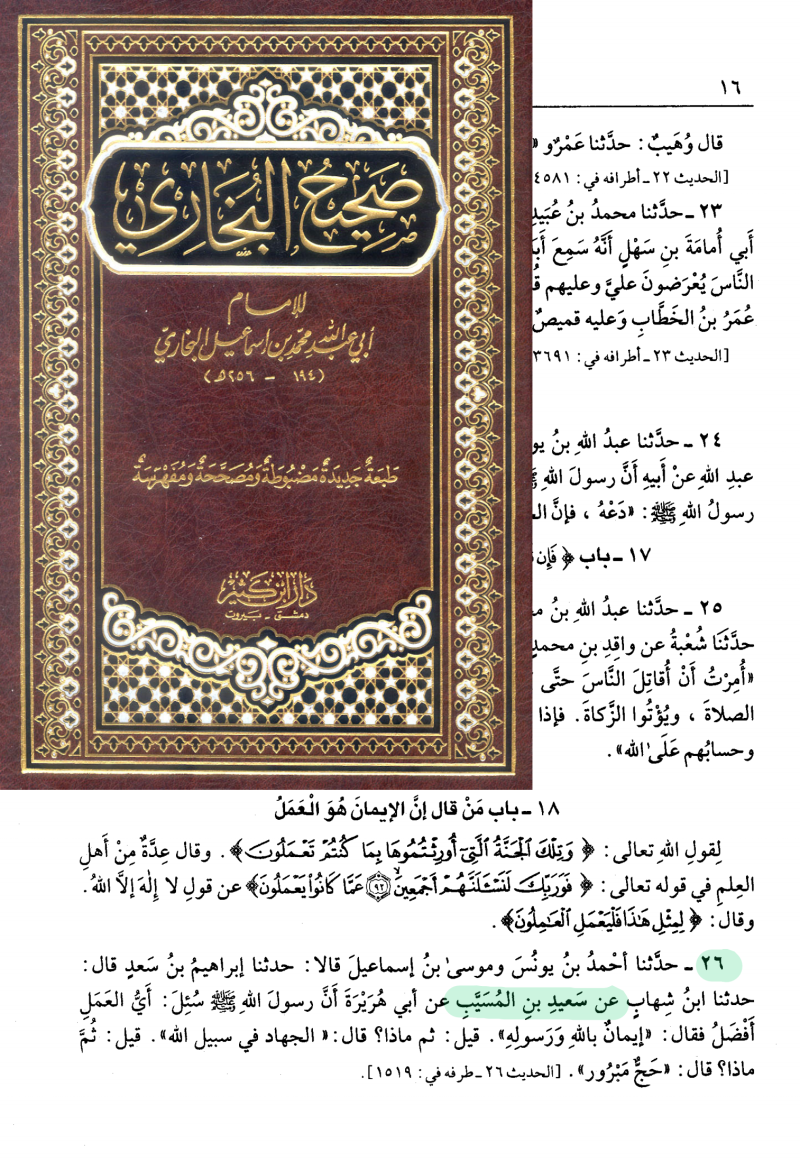 صَحِيحُ البُخَارِي
للإمام
أبي عبد الله محمد بن إسماعيل البخاريّ
(١٩٤ - ٢٥٦هـ)
طَبعَةٌ جَدِيدَةٌ مَضبُوطَةٌ وَمُصَحَّحَةٌ وَمُفَهْرَسَةٌ
دَارُ ابْن كَثِير
دمشق - بيروت
١٦
قال وُهَيبٌ: حدَّثنا عَمْرٌو «
[الحديث ٢٢ ـ أطرافه في: ٤٥٨١
٢٣ ـ حدَّثنا محمدُ بنُ عُبَيدِ
أَبي أُمامَةَ بنِ سَهْلٍ أنَّهُ سَمِعَ
النَّاسَ يُعْرَضونَ عليَّ وعليهم
عُمَرُ بنُ الخَطَّابِ وَعليه قميصٌ
[الحديث ٢٣ ـ أطرافه في: ٣٦٩١
٢٤ ـ حدَّثنا عبدُ اللهِ بنُ
عبدِ اللهِ عنْ أَبيهِ أنَّ رسولَ اللهِ
رسولُ اللهِ ﷺ: «دَعْهُ، فإنَّ
١٧ ـ باب ﴿فَإِن
٢٥ ـ حدَّثنا عبدُ اللهِ بنُ
حدَّثَنا شُعْبةُ عن واقِدِ بنِ محمدٍ
«أُمِرْتُ أنْ أُقاتِلَ النَّاسَ حتَّى
الصلاةَ، ويُؤْتُوا الزَّكاةَ. فإذا
وحسابُهم عَلَى الله».
١٨ ـ باب مَنْ قال إنَّ الإيمانَ هُوَ الْعَمَلُ
لِقولِ اللهِ تعالى: ﴿وَتِلْكَ الْجَنَّةُ الَّتِي أُورِثْتُمُوهَا بِمَا كُنتُمْ تَعْمَلُونَ﴾. وقال عِدَّةٌ مِنْ أهلِ
العِلمِ في قوله تعالى: ﴿فَوَرَبِّكَ لَنَسْـَٔلَنَّهُمْ أَجْمَعِينَ ۝٩٢ عَمَّا كَانُوا يَعْمَلُونَ﴾ عن قولِ لا إلٰهَ إلاَّ اللهُ.
وقال: ﴿لِمِثْلِ هَٰذَا فَلْيَعْمَلِ الْعَامِلُونَ﴾.
٢٦ ـ حدَّثنا أحْمدُ بنُ يونُسَ وموسىٰ بنُ إسماعيلَ قالا: حدثنا إبراهيمُ بنُ سَعدٍ قال:
حدثنا ابنُ شِهابٍ عن سَعيدِ بنِ المُسَيَّبِ عن أبي هُرَيْرَةَ أنَّ رسولَ اللهِ ﷺ سُئِلَ: أيُّ العَمَلِ
أَفْضَلُ فقال: «إيمانٌ باللهِ وَرَسولِهِ». قيل: ثم ماذا؟ قال: «الجهاد في سبيل الله». قيل: ثُمَّ
ماذا؟ قال: «حَجٌّ مَبْرُور». [الحديث ٢٦ ـ طرفه في: ١٥١٩].